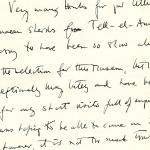 Very many thanks for yr letter
nean sherds from Tell-el-Am
sorry to have been so slow ab
the selection for this Museum, but
exceptionally busy lately and have b
for my short visits full of
was hoping to be able to come on
However, it is not so much